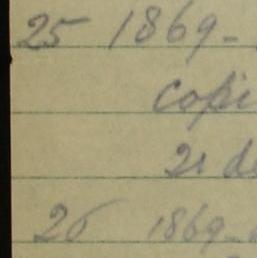 25 1869-
copi
21 de
26 1869-